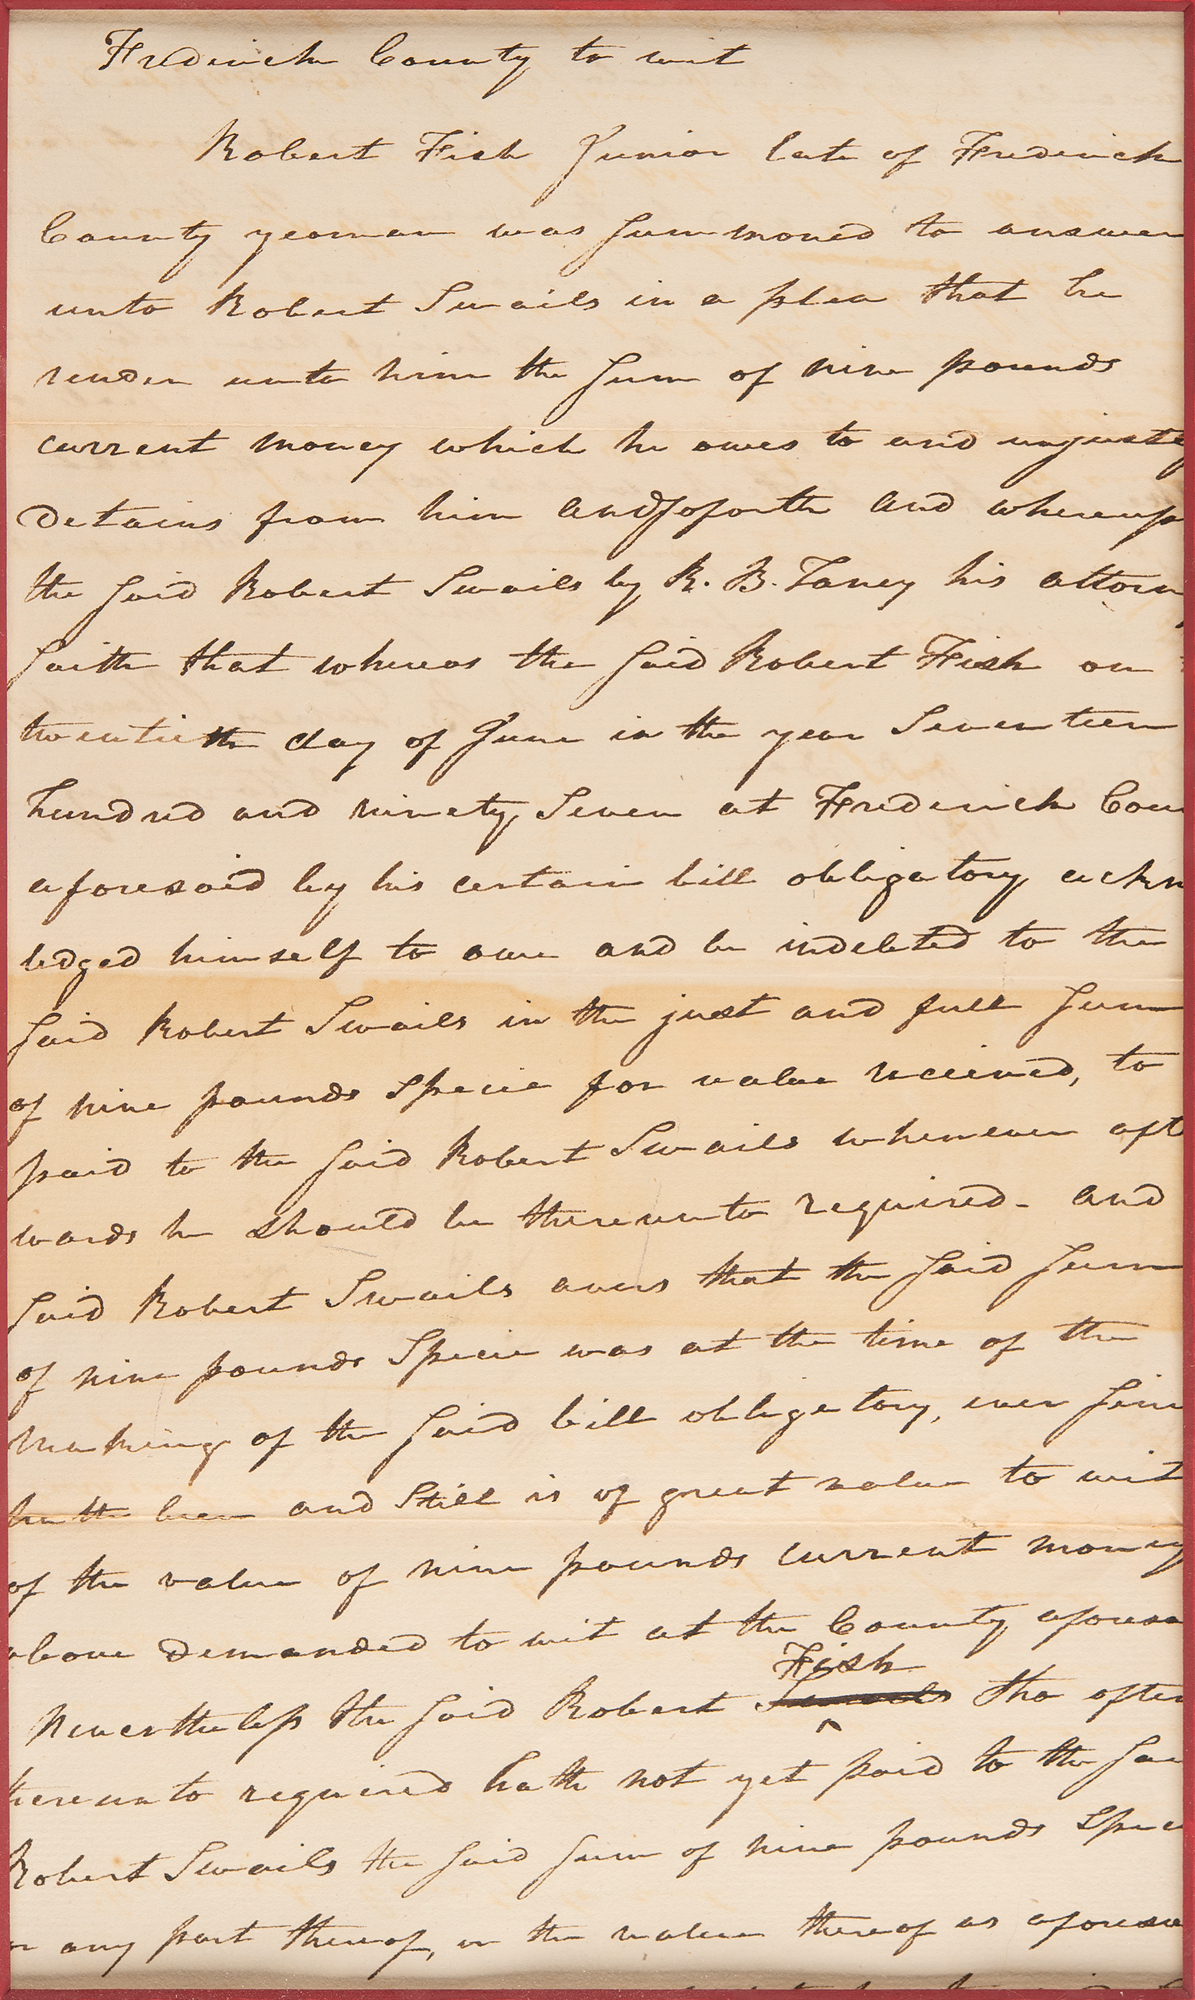 Frederick County to wit
Robert Fish Junior late of Frederick
County yeoman was summoned to answer
unto Robert Swails in a plea that he
render unto him the sum of nine pounds
current money which he owes to and unjustly
detains from him andsoforth and whereup
the said Robert Swails by R. B. Taney his attorn
saith that whereas the said Robert Fish on
twentieth day of June in the year Seventeen
hundred and ninety Seven at Frederick Coun
aforesaid by his certain bill obligatory ackn
ledged himself to owe and be indebted to the
said Robert Swails in the just and full sum
of nine pounds Specie for value received, to
paid to the said Robert Swails whenever aft
wards he should be thereunto required - and
said Robert Swails avers that the said sum
of nine pounds Specie was at the time of the
making of the said bill obligatory, ever sin
hath been and Still is of great value to wit
of the value of nine pounds current money
above demanded to wit at the County aforesa
Fish
Nevertheless the said Robert Swails tho often
hereunto required hath not yet paid to the sai
Robert Swails the said sum of nine pounds Spec
or any part thereof, or the value thereof as aforesa